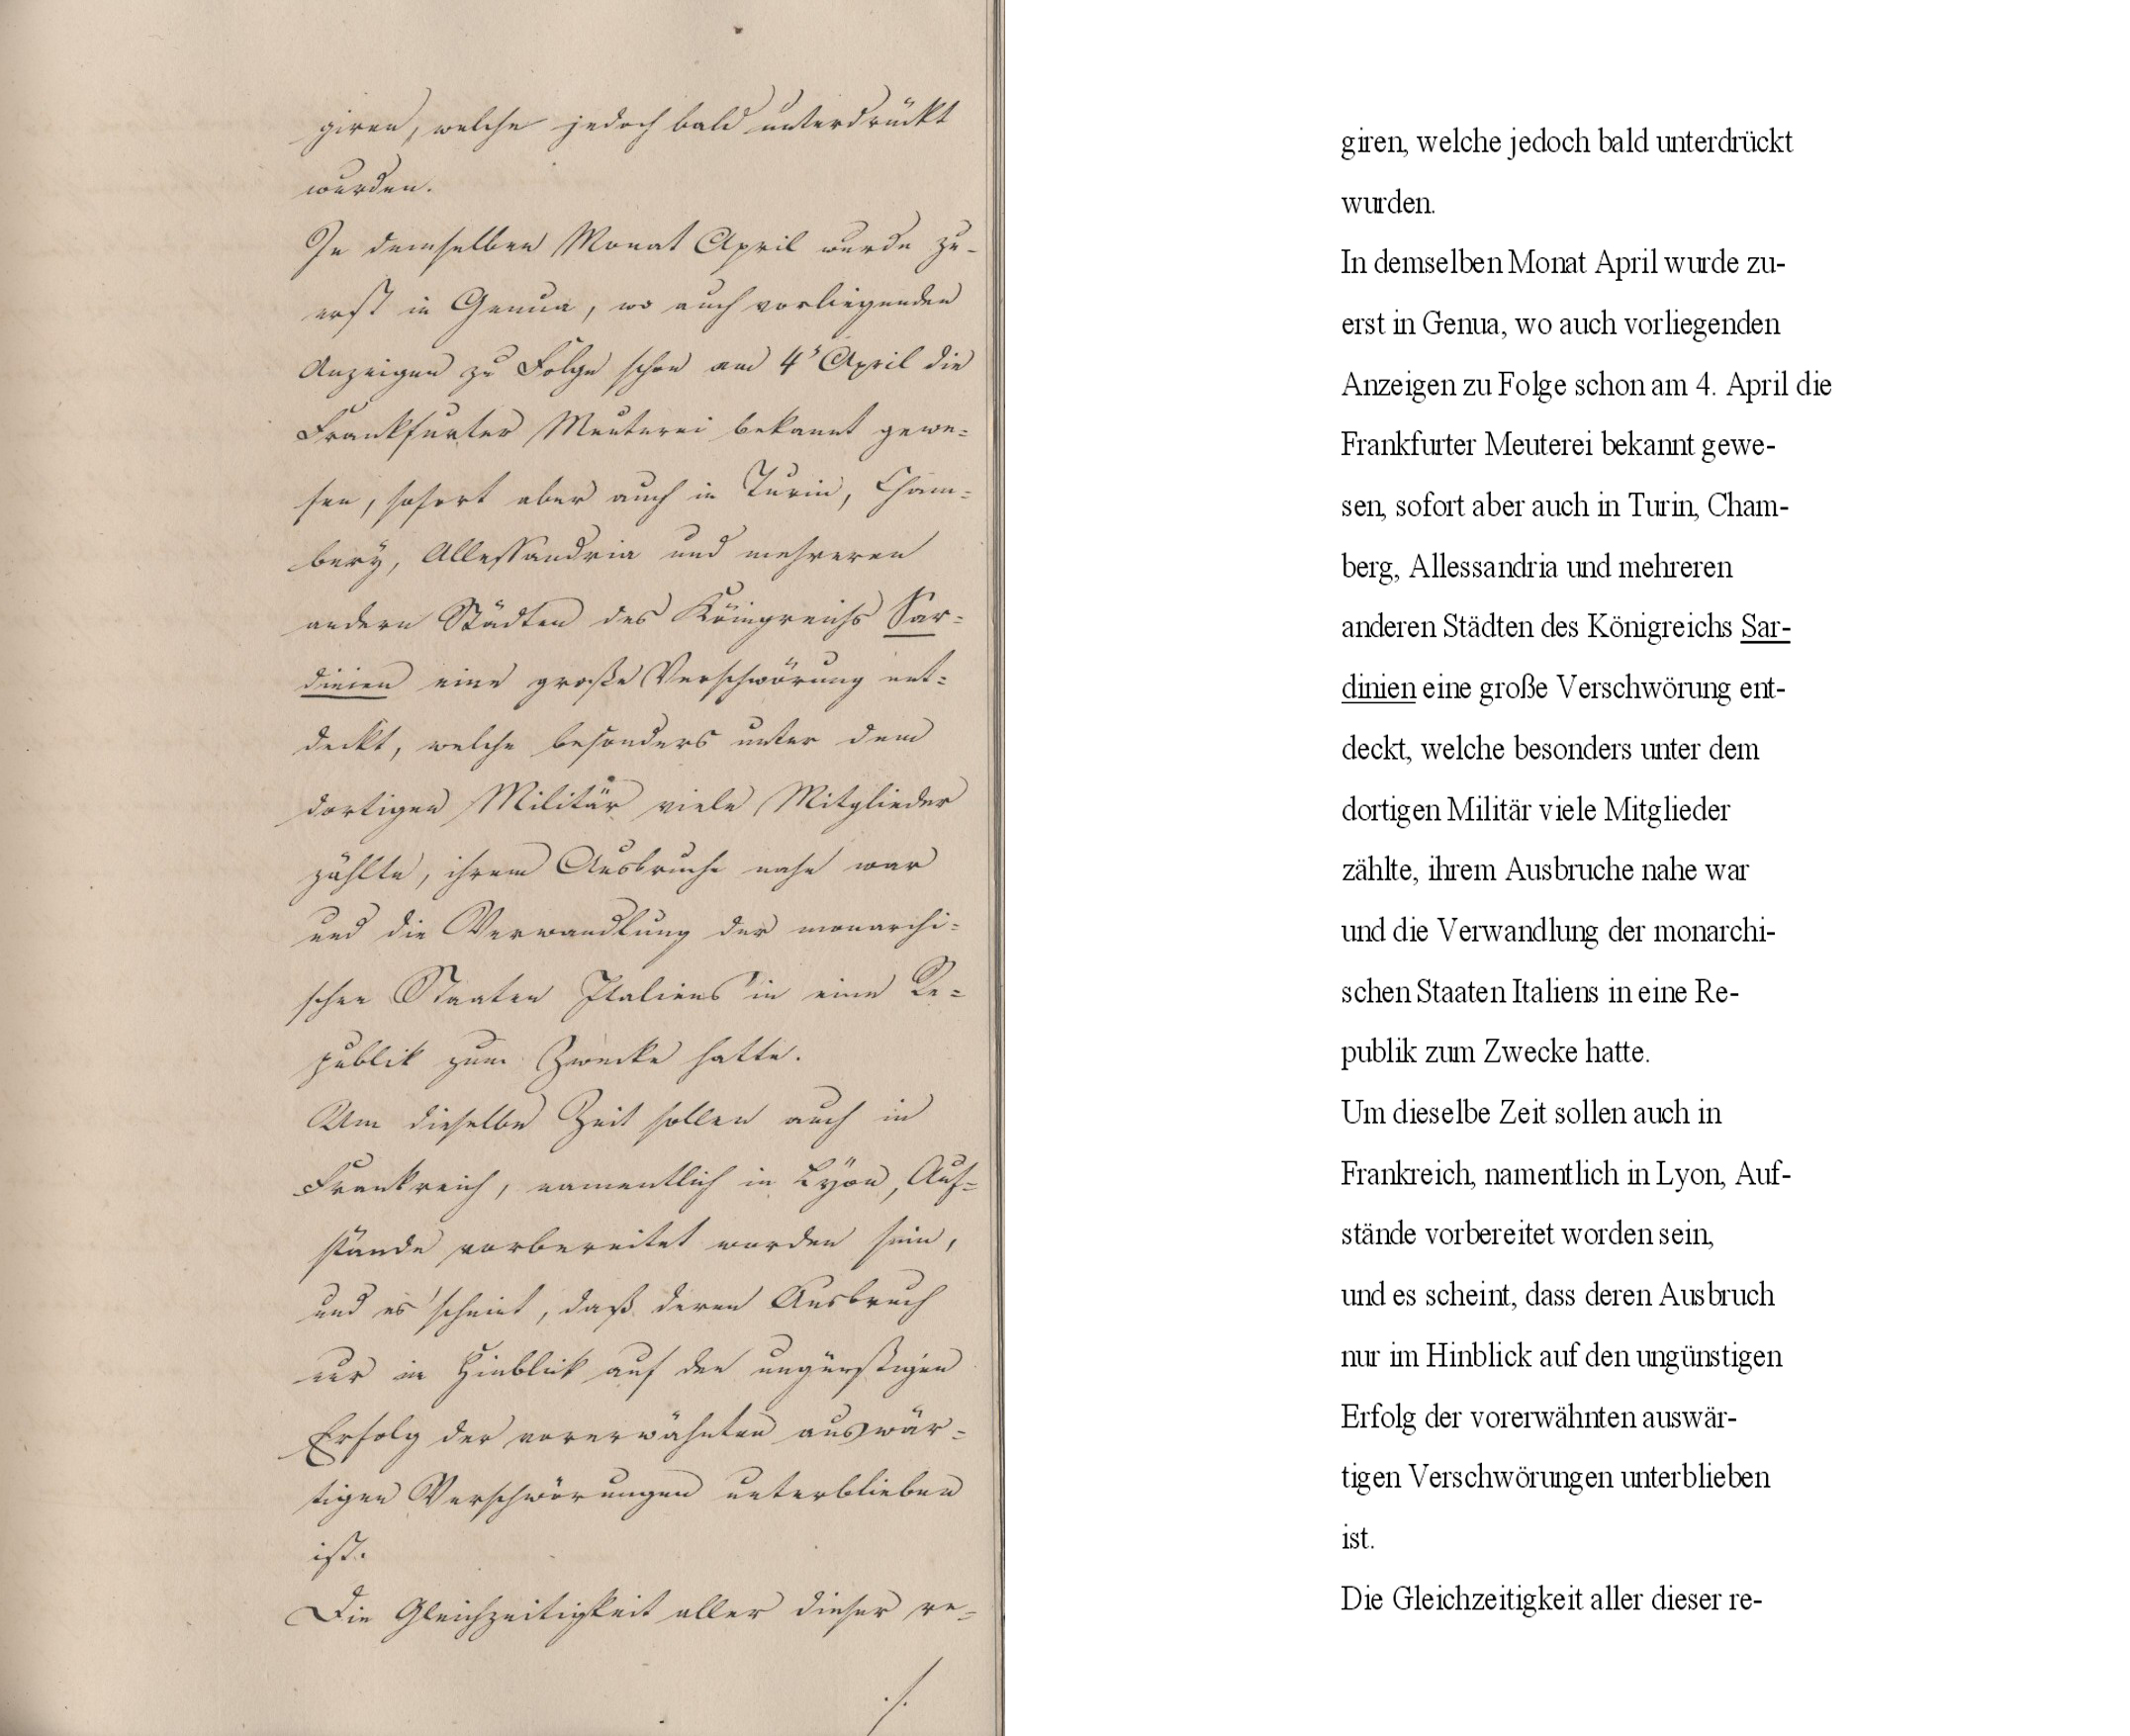 giren, welche jedoch bald unterdrückt
wurden.
In demselben Monat April wurde zu-
erst in Genua, wo auch vorliegenden
Anzeigen zu Folge schon am 4t April die
Frankfurter Meuterei bekannt gewe-
sen, sofort aber auch in Turin, Cham-
bery, Allessandria und mehreren
andern Städten des Königreichs Sar-
dinien eine große Verschwörung ent-
deckt, welche besonders unter dem
dortigen Militär viele Mitglieder
zählte, ihrem Ausbruche nahe war
und die Verwandlung der monarchi-
schen Staaten Italiens in eine Re-
publik zum Zwecke hatte.
Um dieselbe Zeit sollen auch in
Frankreich, namentlich in Lÿon, Auf-
stände vorbereitet worden sein,
und es scheint, daß deren Ausbruch
nur im Hinblick auf den ungünstigen
Erfolg der vorerwähnten auswär-
tigen Verschwörungen unterblieben
ist.
Die Gleichzeitigkeit aller dieser re-
./.
giren, welche jedoch bald unterdrückt
wurden.
In demselben Monat April wurde zu-
erst in Genua, wo auch vorliegenden
Anzeigen zu Folge schon am 4. April die
Frankfurter Meuterei bekannt gewe-
sen, sofort aber auch in Turin, Cham-
berg, Allessandria und mehreren
anderen Städten des Königreichs Sar-
dinien eine große Verschwörung ent-
deckt, welche besonders unter dem
dortigen Militär viele Mitglieder
zählte, ihrem Ausbruche nahe war
und die Verwandlung der monarchi-
schen Staaten Italiens in eine Re-
publik zum Zwecke hatte.
Um dieselbe Zeit sollen auch in
Frankreich, namentlich in Lyon, Auf-
stände vorbereitet worden sein,
und es scheint, dass deren Ausbruch
nur im Hinblick auf den ungünstigen
Erfolg der vorerwähnten auswär-
tigen Verschwörungen unterblieben
ist.
Die Gleichzeitigkeit aller dieser re-